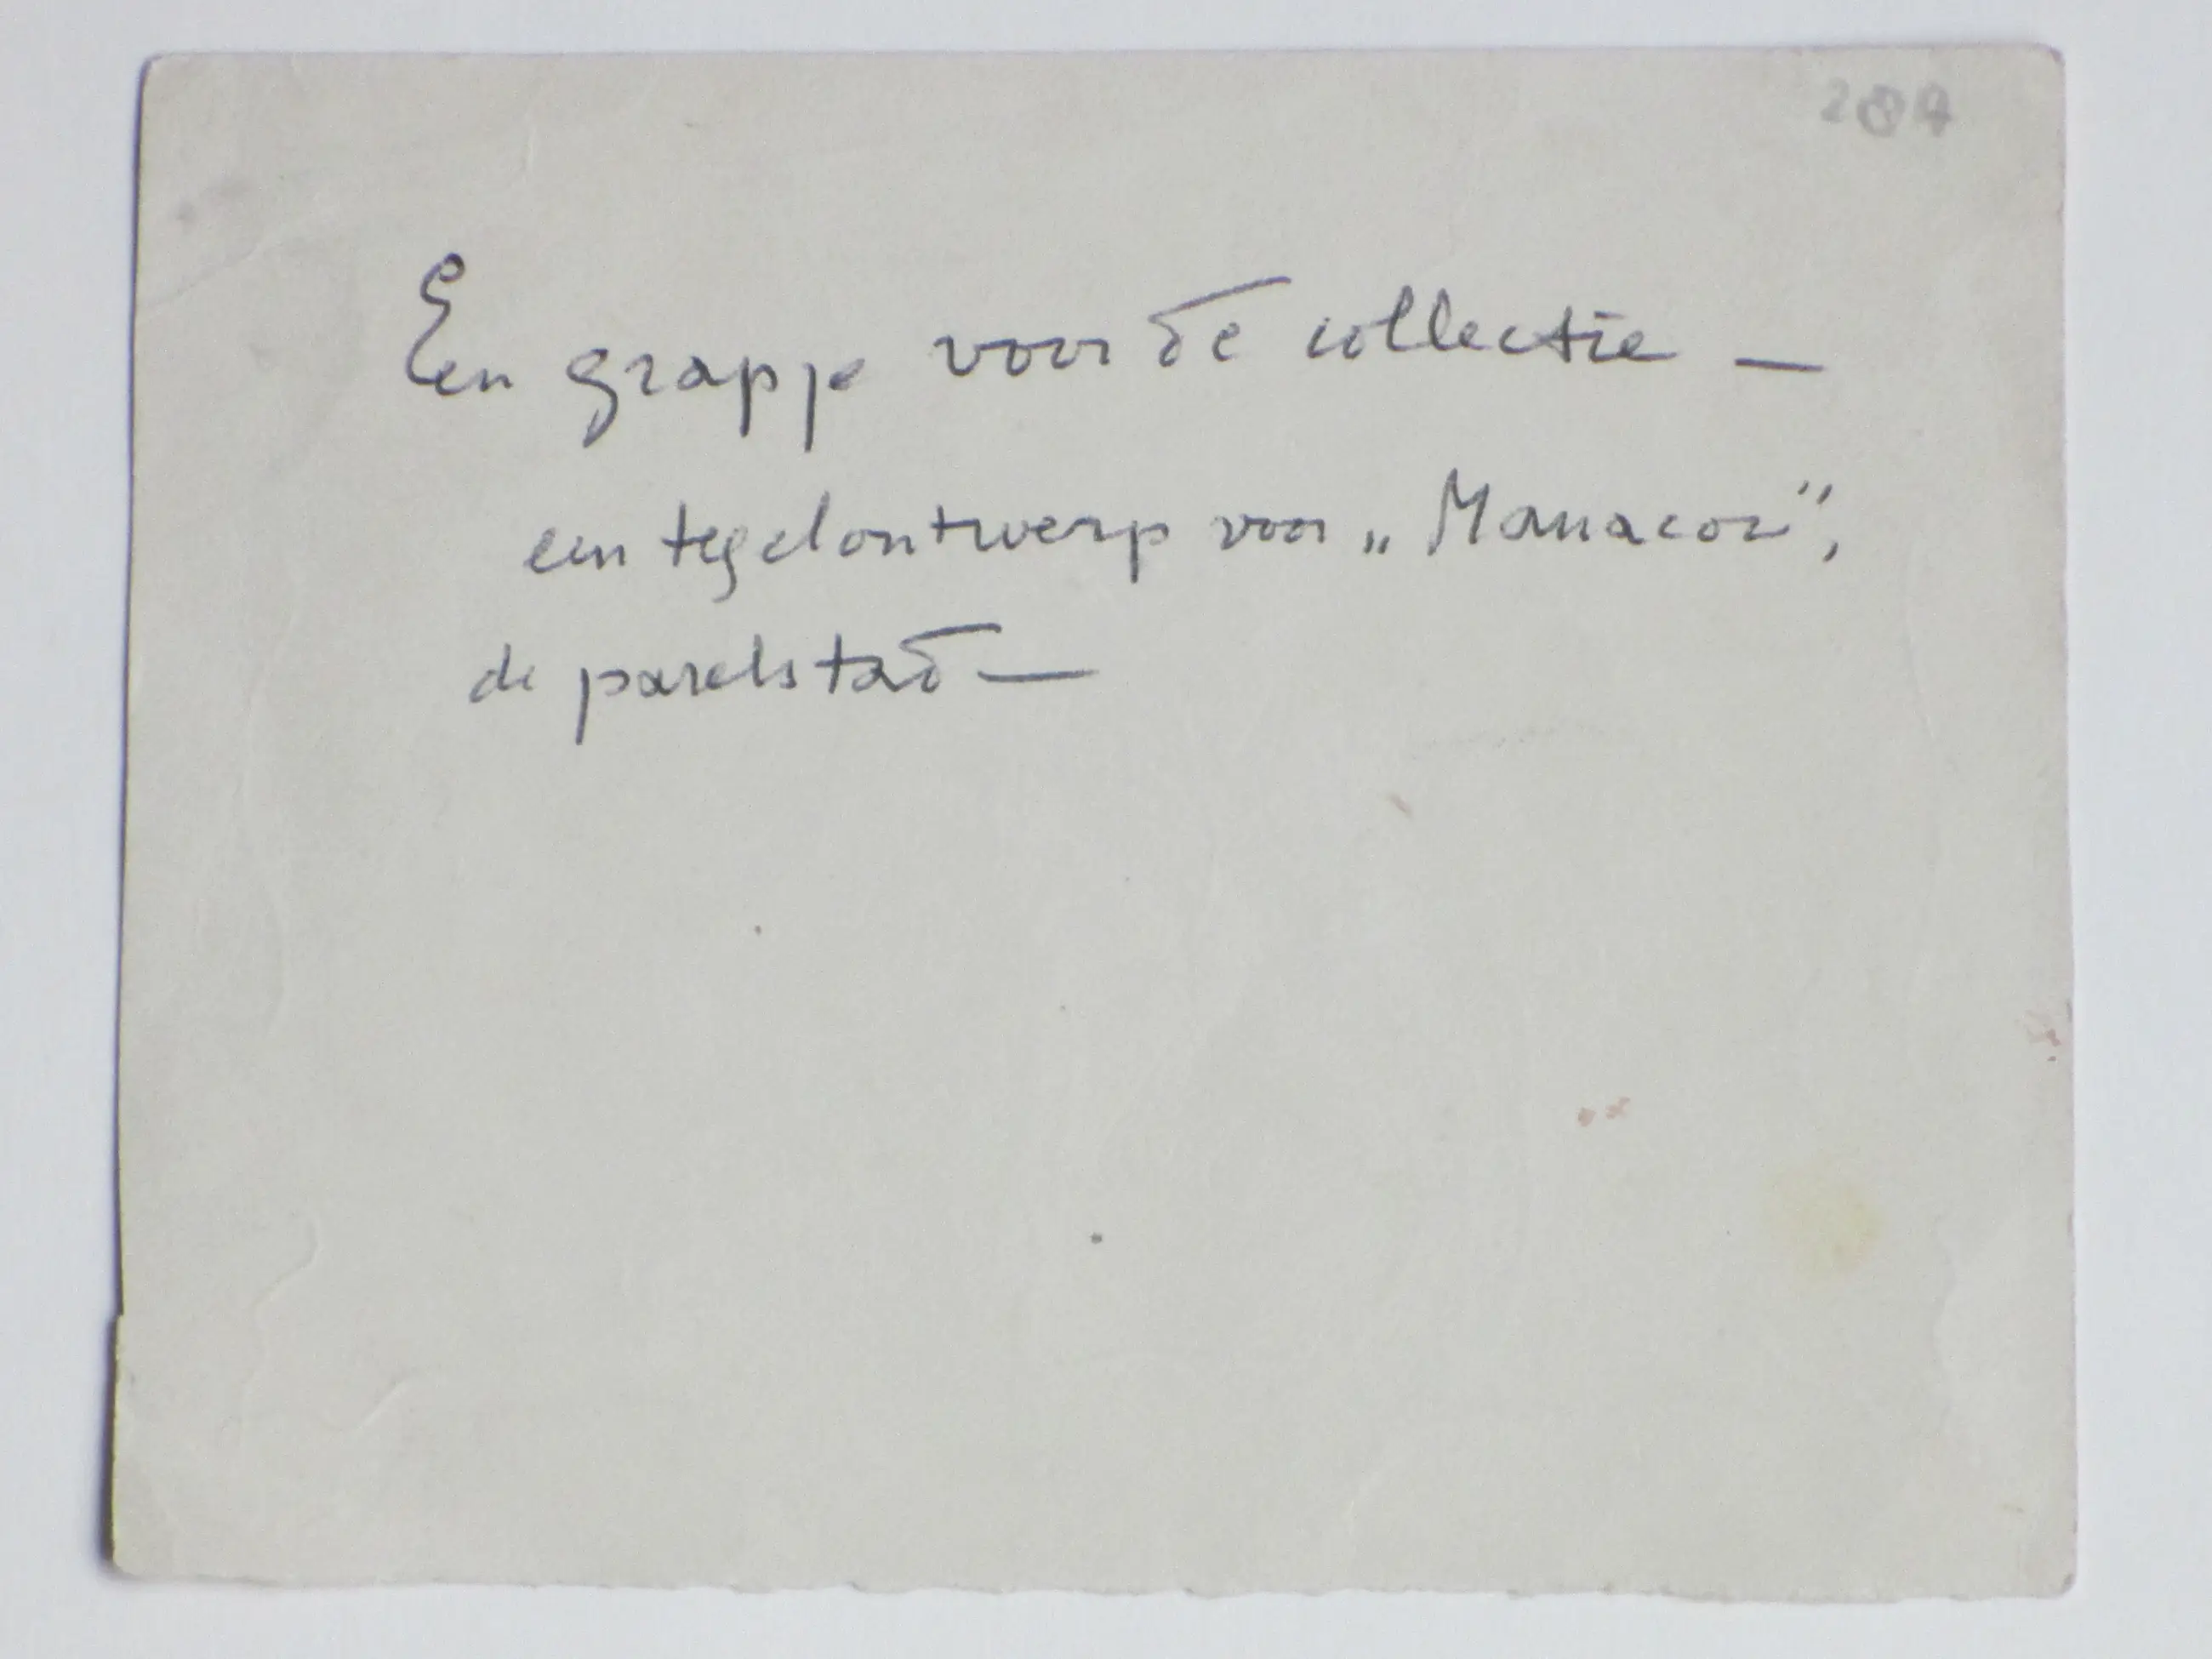 284
Een grapje voor de collectie —
een tegelontwerp voor „Manacor”,
de parelstad —